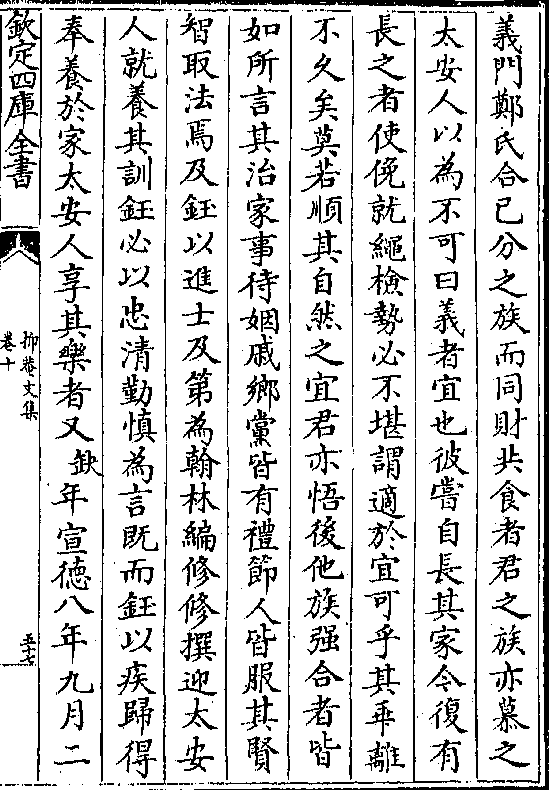 義門鄭氏合已分之族而同財共食者君之族亦慕之
太安人以為不可曰義者宜也彼嘗自長其家令復有
長之者使俛就繩檢勢必不堪謂適於宜可乎其乖離
不久矣莫若順其自然之宜君亦悟後他族强合者皆
如所言其治家事待姻戚鄉黨皆有禮節人皆服其賢
智取法焉及鈺以進士及第為翰林編修修撰迎太安
人就養其訓鈺必以忠清勤慎為言既而鈺以疾歸得
奉養於家太安人享其樂者又缺年宣德八年九月二
欽定四庫全書
抑菴文集
卷十
五十七